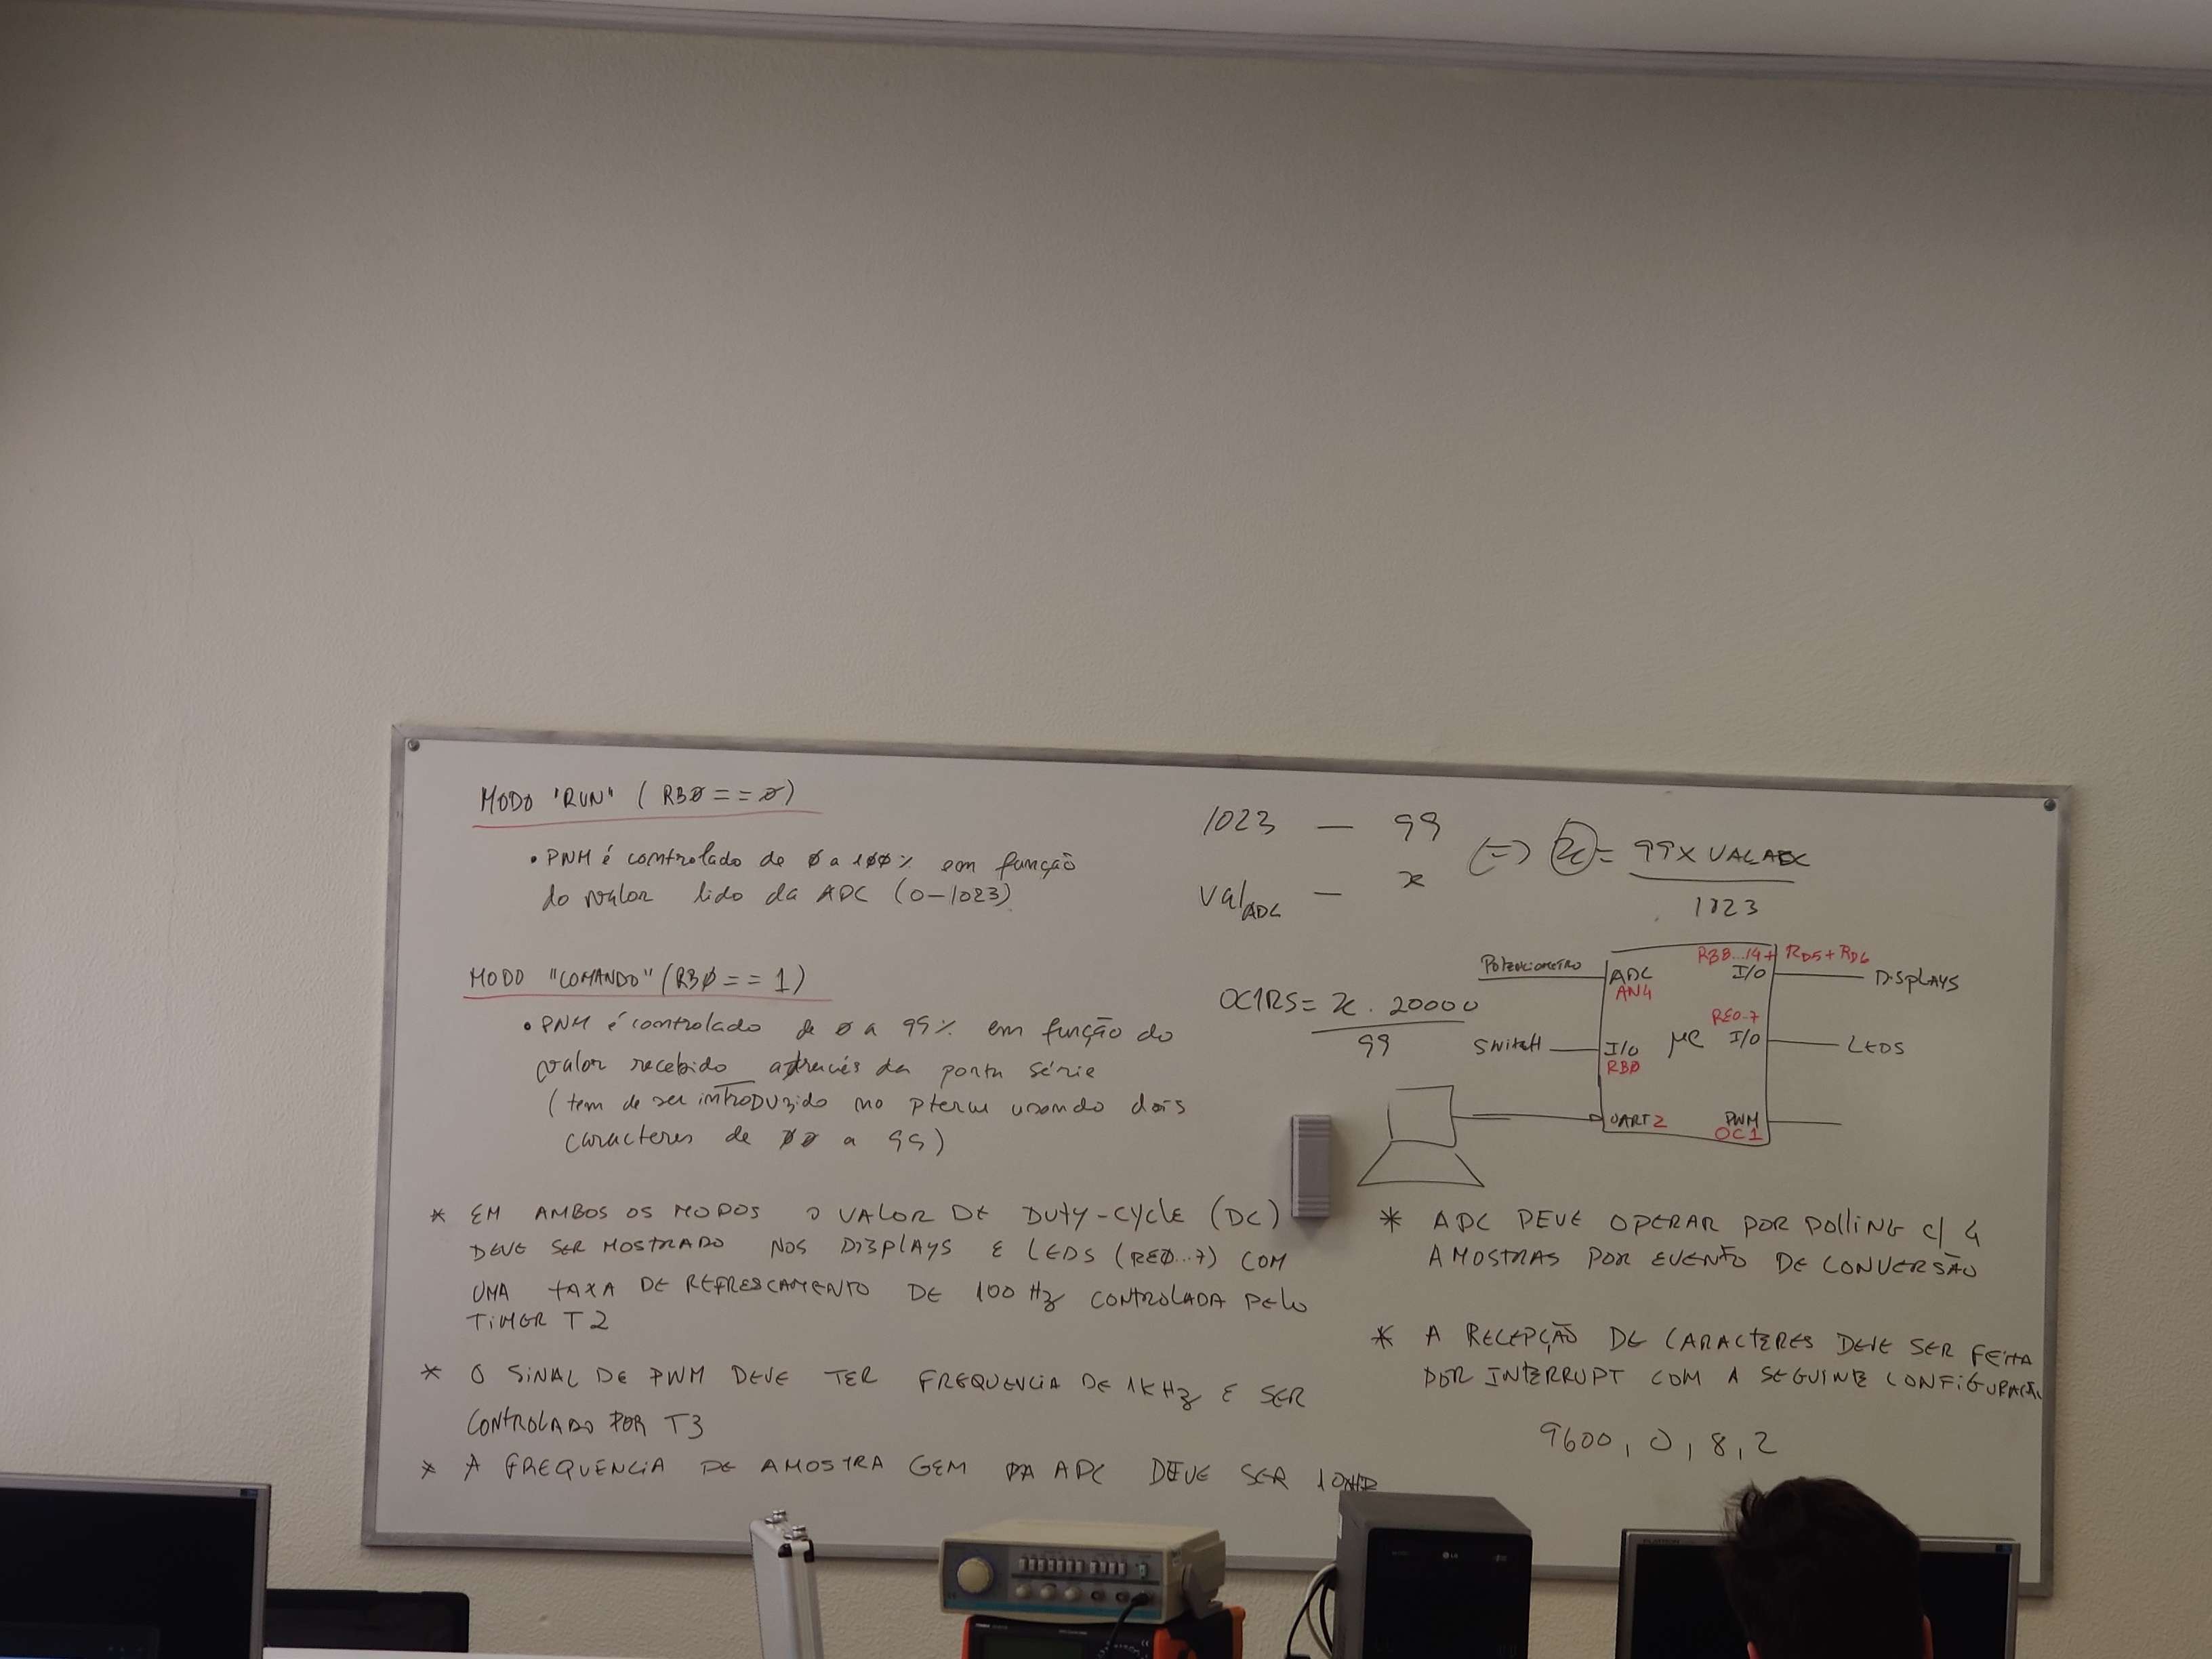 MODO "RUN" ( RBØ == Ø)
• PWM é controlado de Ø a 1ØØ% em função
do valor lido da ADC (0-1023)
MODO "COMANDO" (RBØ == 1)
• PWM é controlado de Ø a 99% em função do
valor recebido através da porta série
( tem de ser introduzido no pterm usando dois
caracteres de ØØ a 99)
* EM AMBOS OS MODOS O VALOR DE DUTY-CYCLE (DC)
DEVE SER MOSTRADO NOS DISPLAYS E LEDS (REØ...7) COM
UMA TAXA DE REFRESCAMENTO DE 100 Hz CONTROLADA PELO
TIMER T2
* O SINAL DE PWM DEVE TER FREQUENCIA DE 1KHz E SER
CONTROLADO POR T3
* A FREQUENCIA DE AMOSTRAGEM DA ADC DEVE SER
1023 — 99
Val ADC — x
(=) x = 99 X VALADC
1023
OC1RS = x . 20000
99
Potenciometro
ADC
AN4
RB8...14+ RD5+RD6
I/O
DISPLAYS
SWITCH
I/O
RBØ
μC
RE0-7
I/O
LEDS
UART2
PWM
OC1
* ADC DEVE OPERAR POR POLLING C/ 4
AMOSTRAS POR EVENTO DE CONVERSÃO
* A RECEPÇÃO DE CARACTERES DEVE SER FEITA
POR INTERRUPT COM A SEGUINTE CONFIGURAÇÃO
9600, O, 8, 2
LG